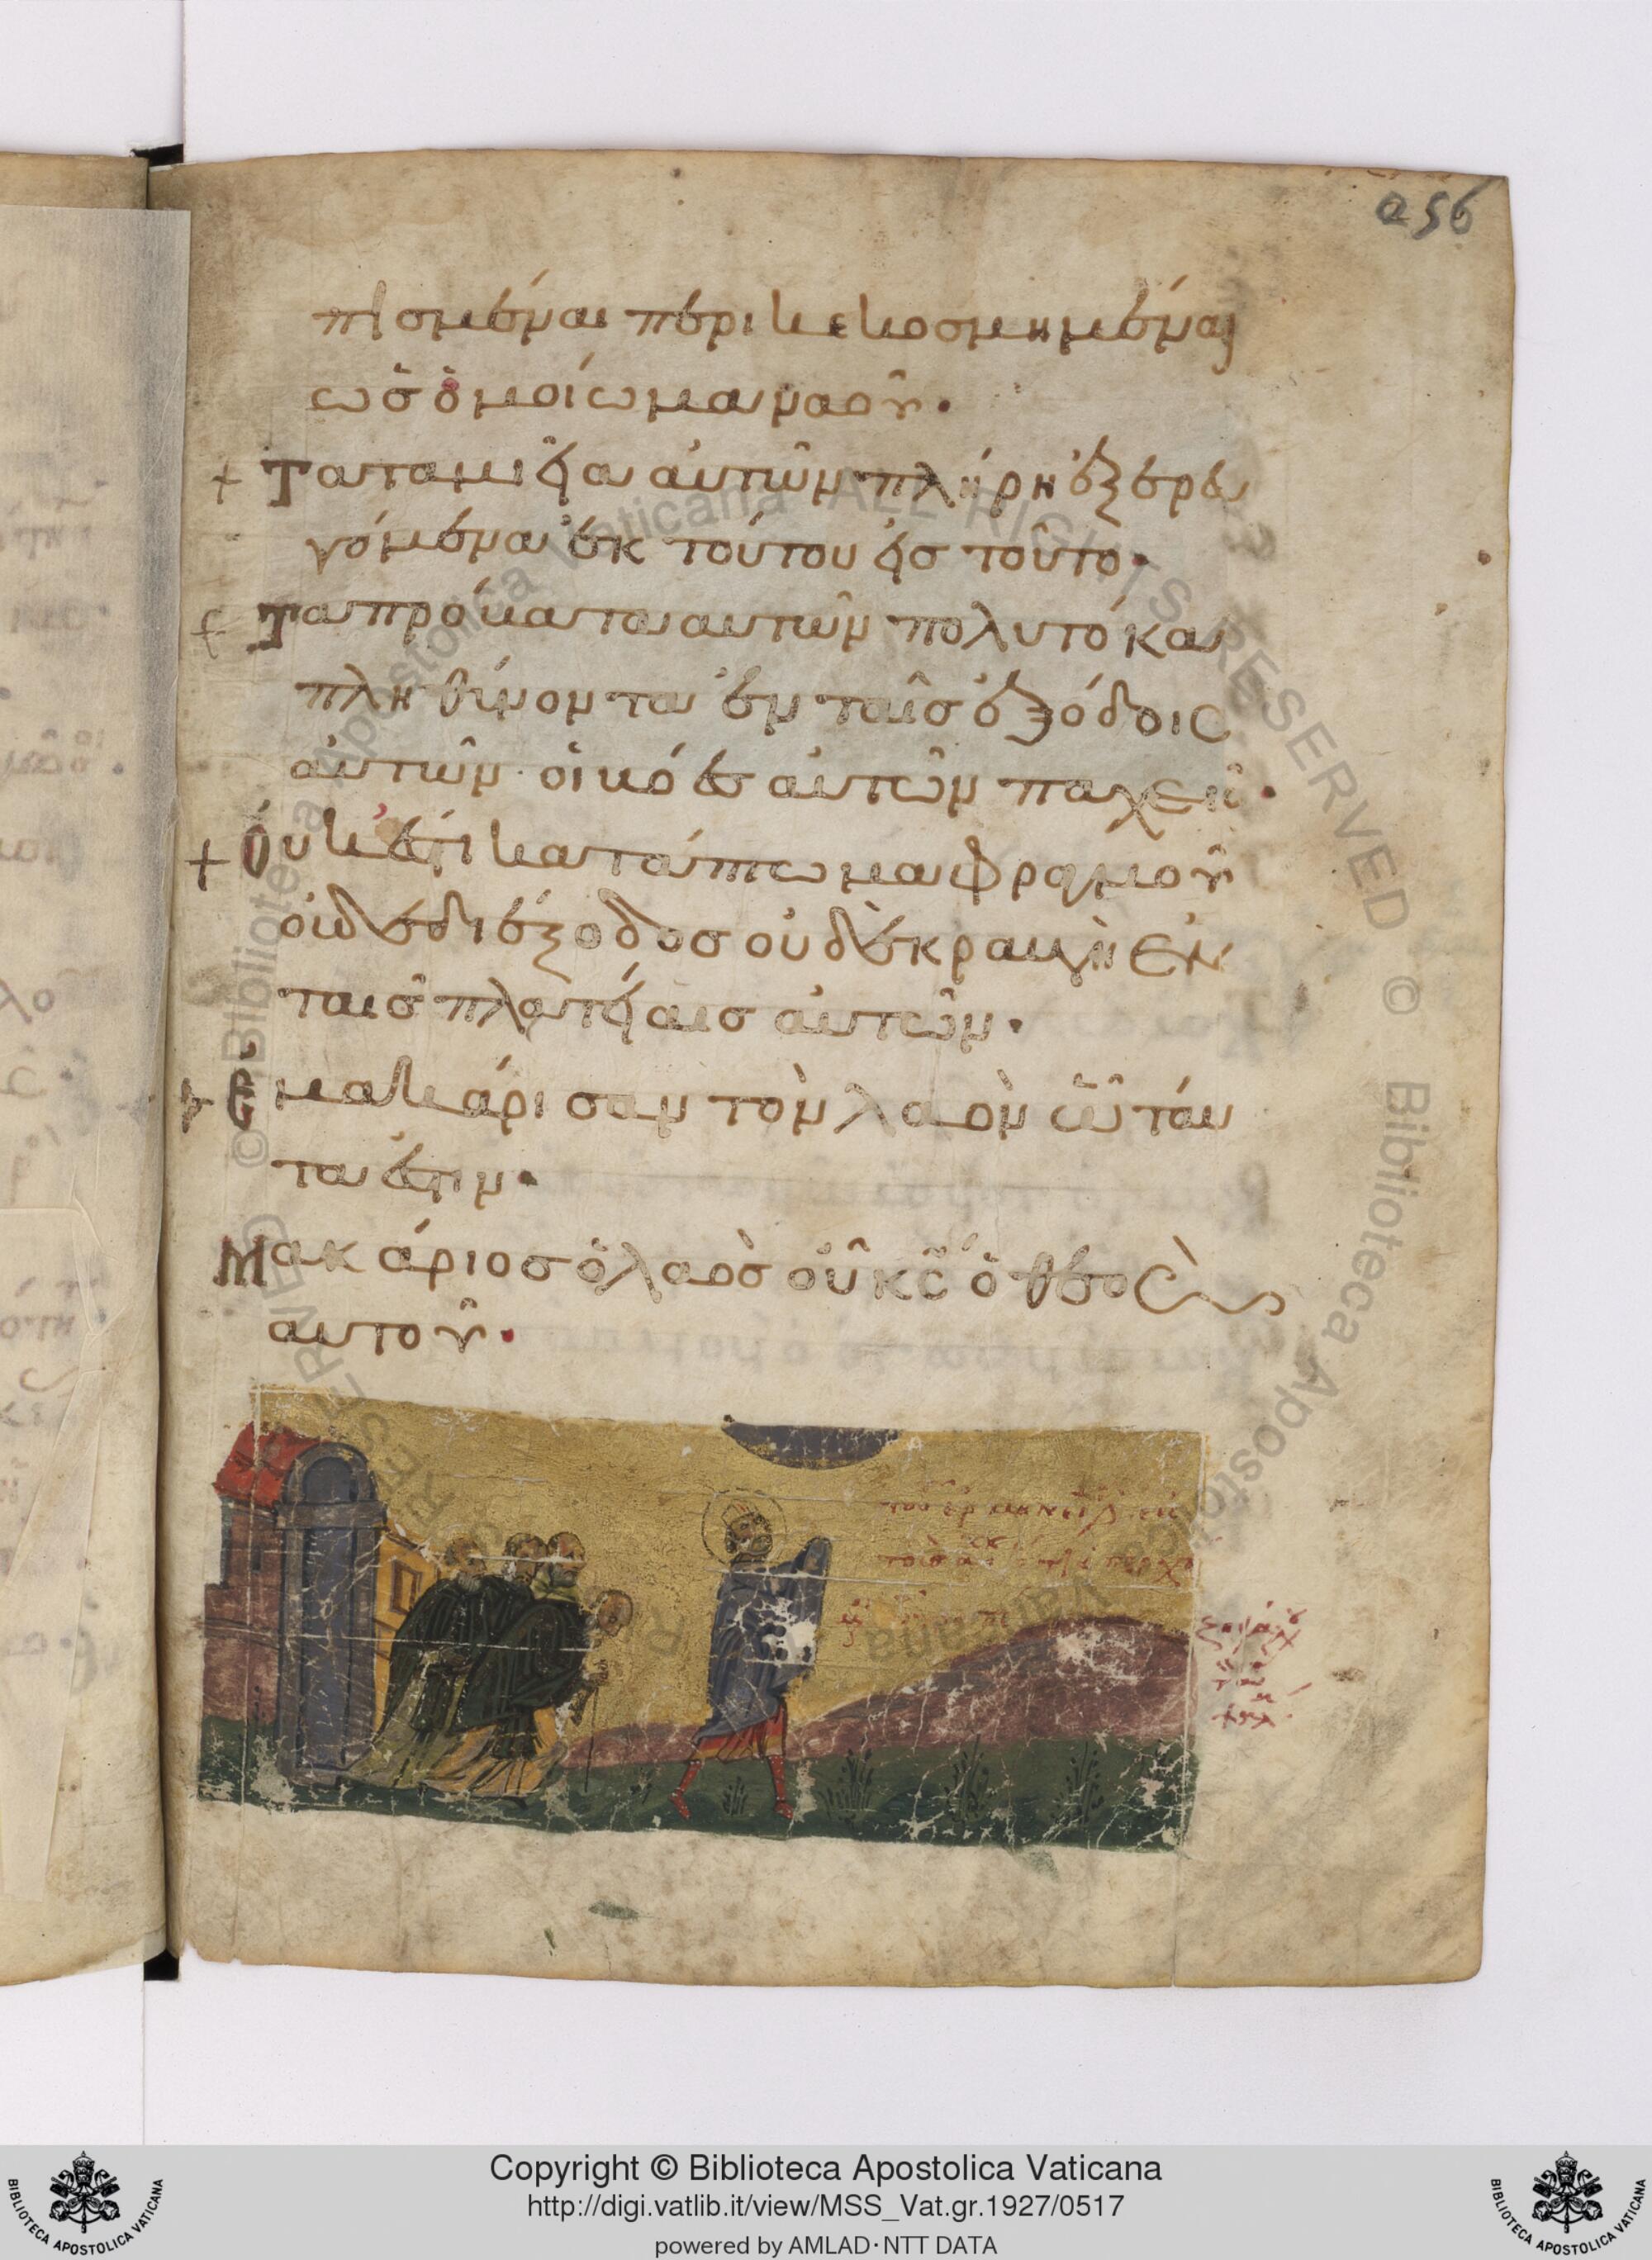 256
πισμέναι περικεκοσμημέναι
ὡς ὁμοίωμα ναοῦ.
+ Τα ταμιεῖα αὐτῶν πλήρη ἐξερευ
γόμενα ἐκ τούτου εἰς τοῦτο.
+ Τα πρόβατα αυτῶν πολυτόκα
πληθύνοντα ἐν ταῖς ἐξόδοις
αὐτῶν. οἱ βόες αὐτῶν παχεῖς.
+ Οὐκ ἔστι κατάπτωμα φραγμοῦ
οὐδὲ διέξοδος οὐδὲ κραυγὴ ἐν
ταις πλατείαις αὐτῶν.
+ Ἐμακάρισαν τὸν λαὸν ὧ ταῦ
τα ἐστιν.
Μακάριος ὁ λαὸς οὗ κς ὁ θεὸς
αυτοῦ.
Copyright © Biblioteca Apostolica Vaticana
http://digi.vatlib.it/view/MSS_Vat.gr.1927/0517
powered by AMLAD·NTT DATA
BIBLIOTECA APOSTOLICA VATICANA
BIBLIOTECA APOSTOLICA VATICANA